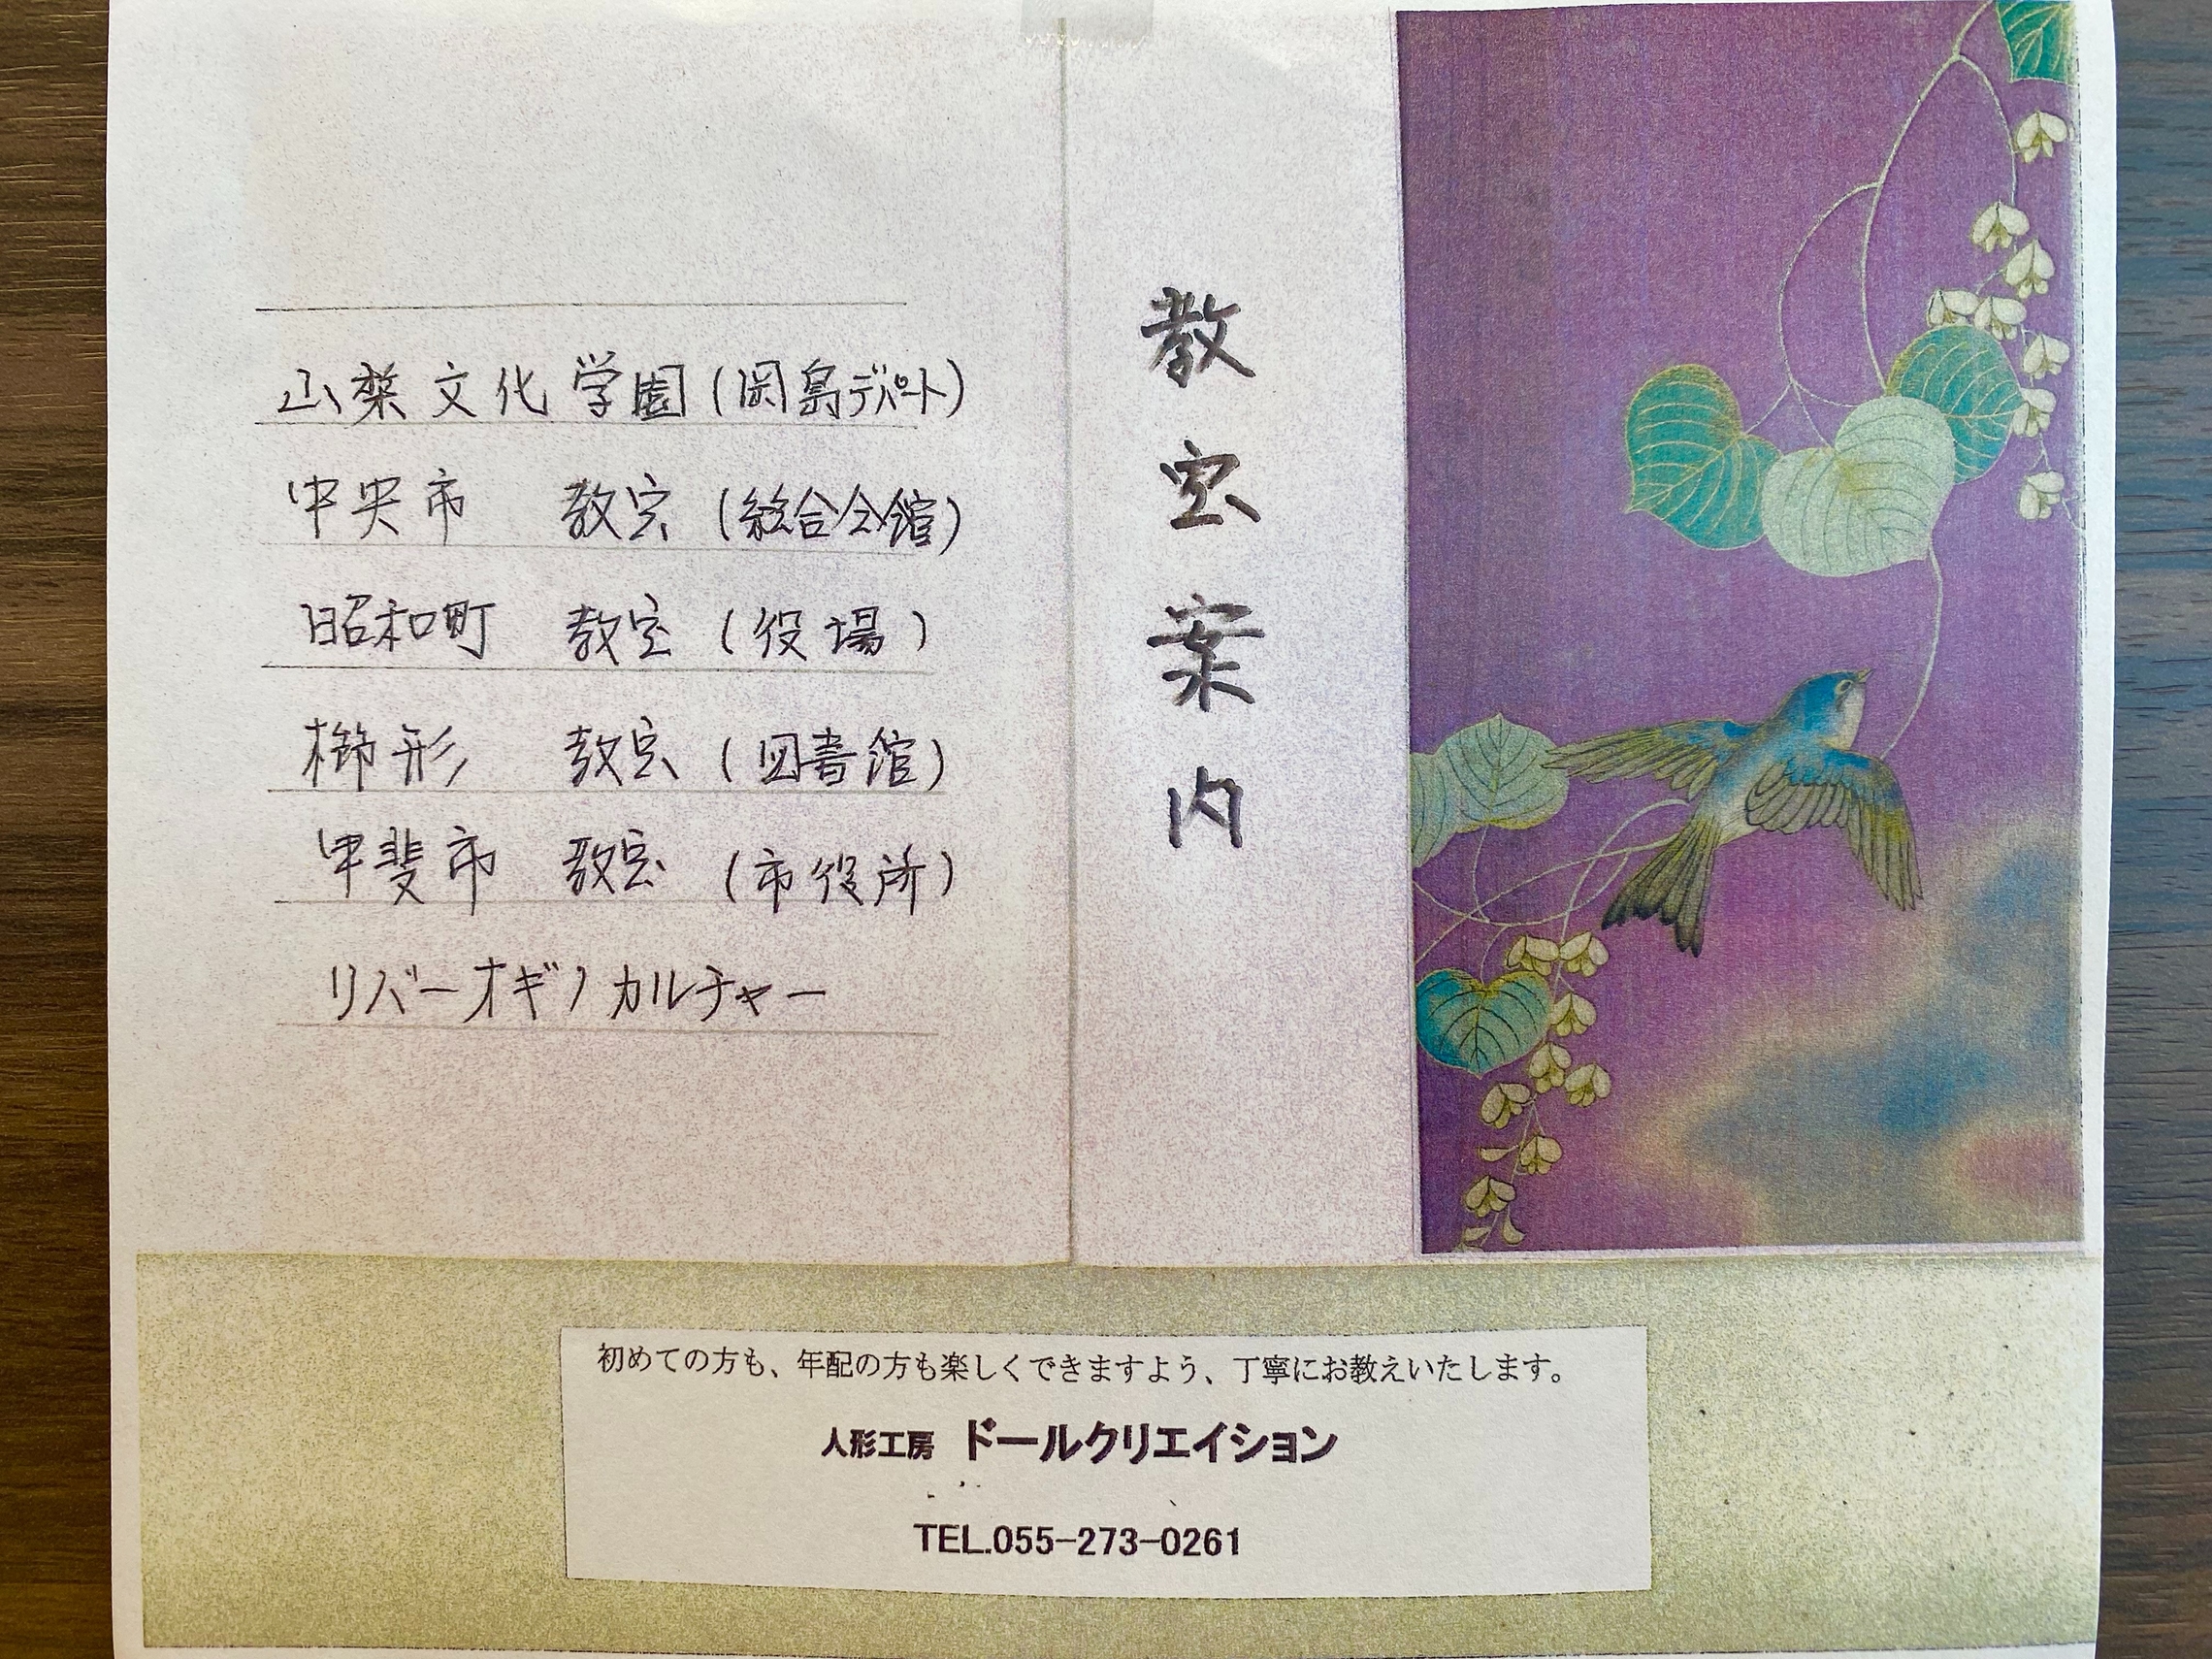 教室案内
山梨文化学園(岡島デパート)
中央市 教室(総合会館)
昭和町 教室(役場)
櫛形 教室(図書館)
甲斐市 教室(市役所)
リバーオギノカルチャー
初めての方も、年配の方も楽しくできますよう、丁寧にお教えいたします。
人形工房 ドールクリエイション
TEL.055-273-0261